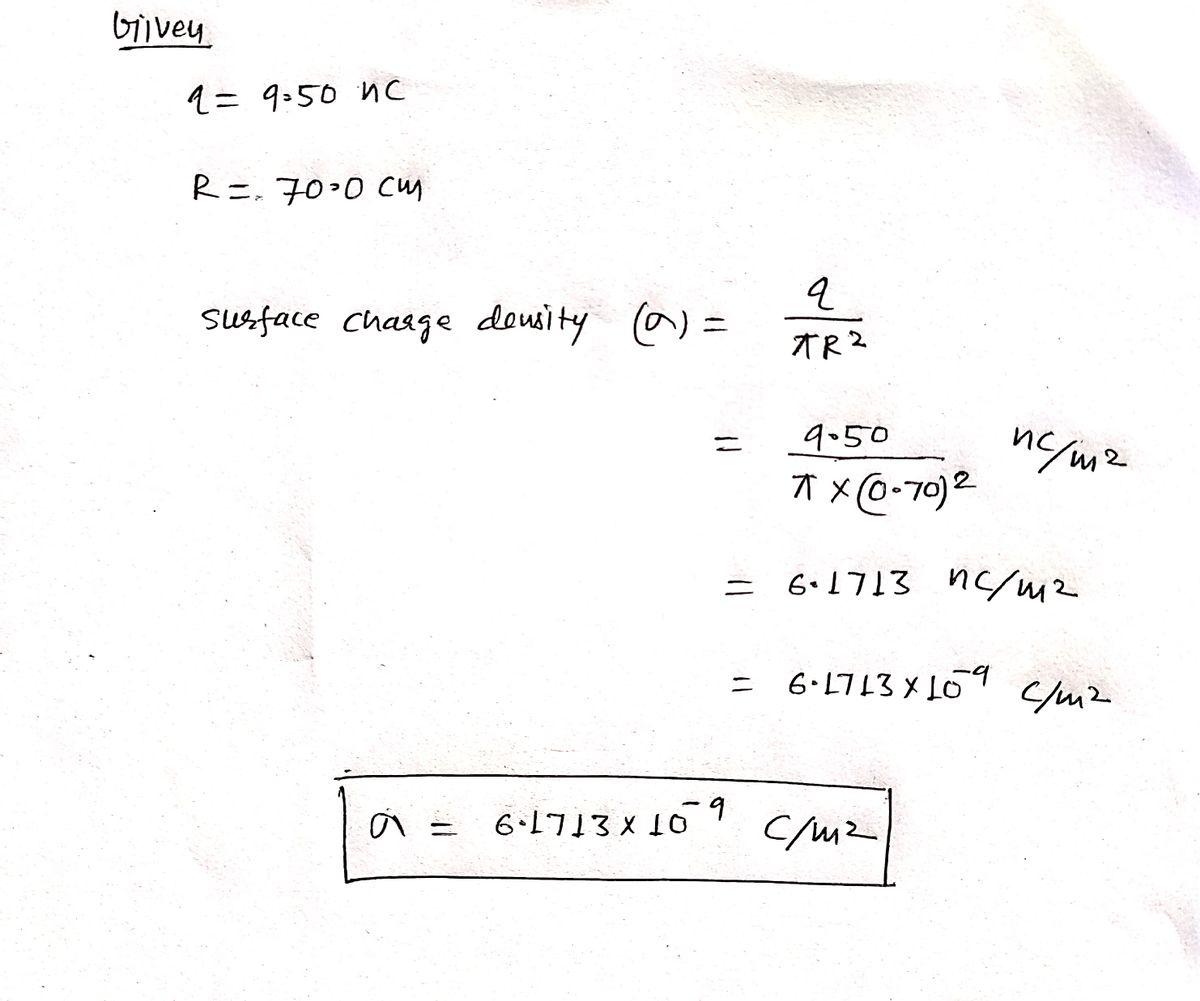 Given
q = 9.50 nC
R = 70.0 cm
surface charge density (σ) = q / πR²
= 9.50 / π × (0.70)² nC/m²
= 6.1713 nC/m²
= 6.1713 × 10⁻⁹ C/m²
σ = 6.1713 × 10⁻⁹ C/m²